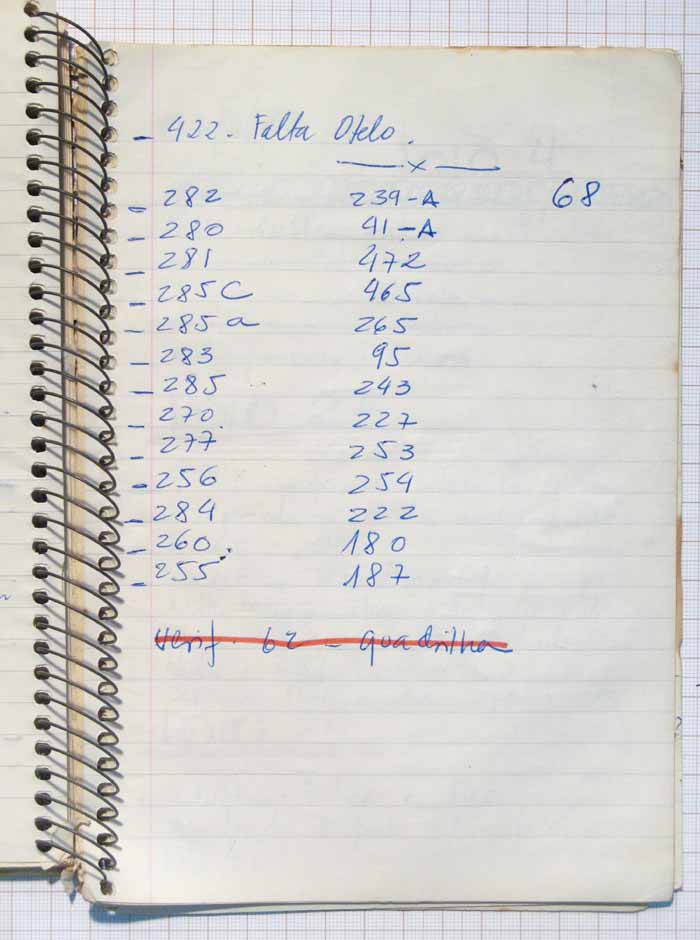 - 422. Falta Otelo.
x
- 282 239-A 68
- 280 41-A
- 281 472
- 285C 465
- 285a 265
- 283 95
- 285 243
- 270 227
- 277 253
- 256 254
- 284 222
- 260. 180
- 255 187
Verif. 62 - quadrilha